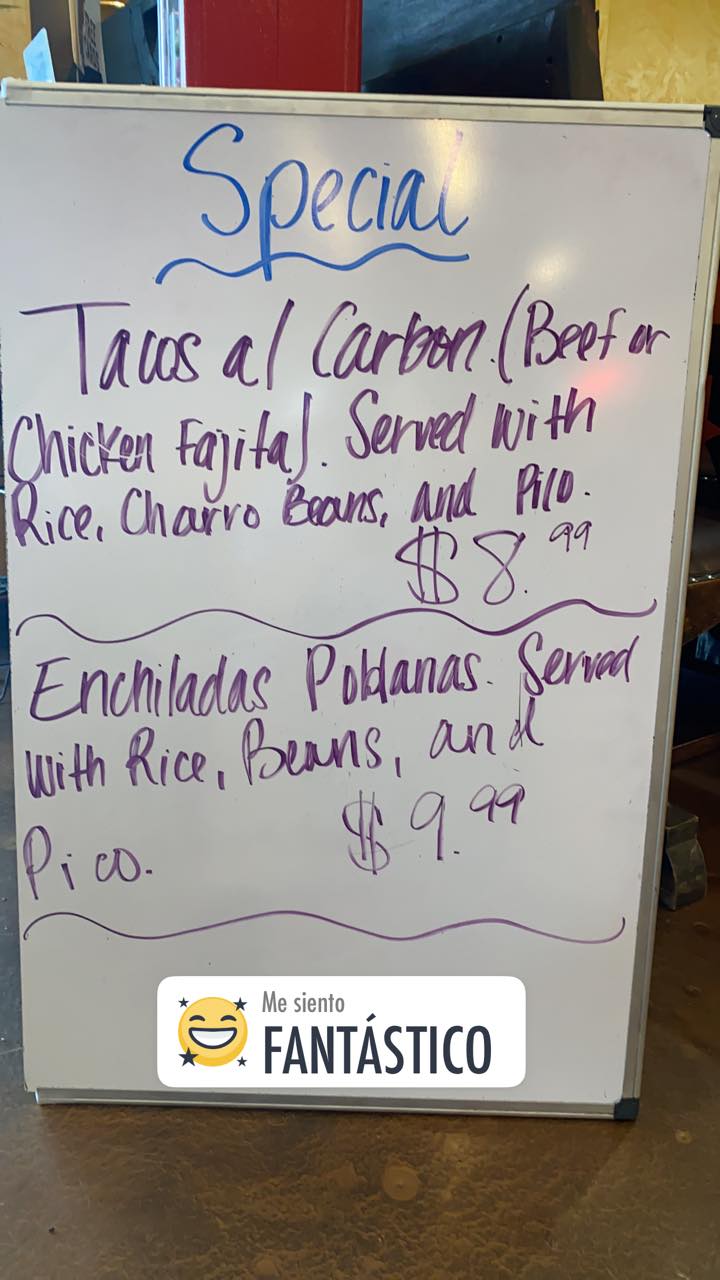 Special
Tacos al Carbon. (Beef or
Chicken Fajita). Served with
Rice, Charro Beans, and Pico.
$8.99
Enchiladas Poblanas. Served
with Rice, Beans, and
Pico. $9.99
Me siento
FANTÁSTICO